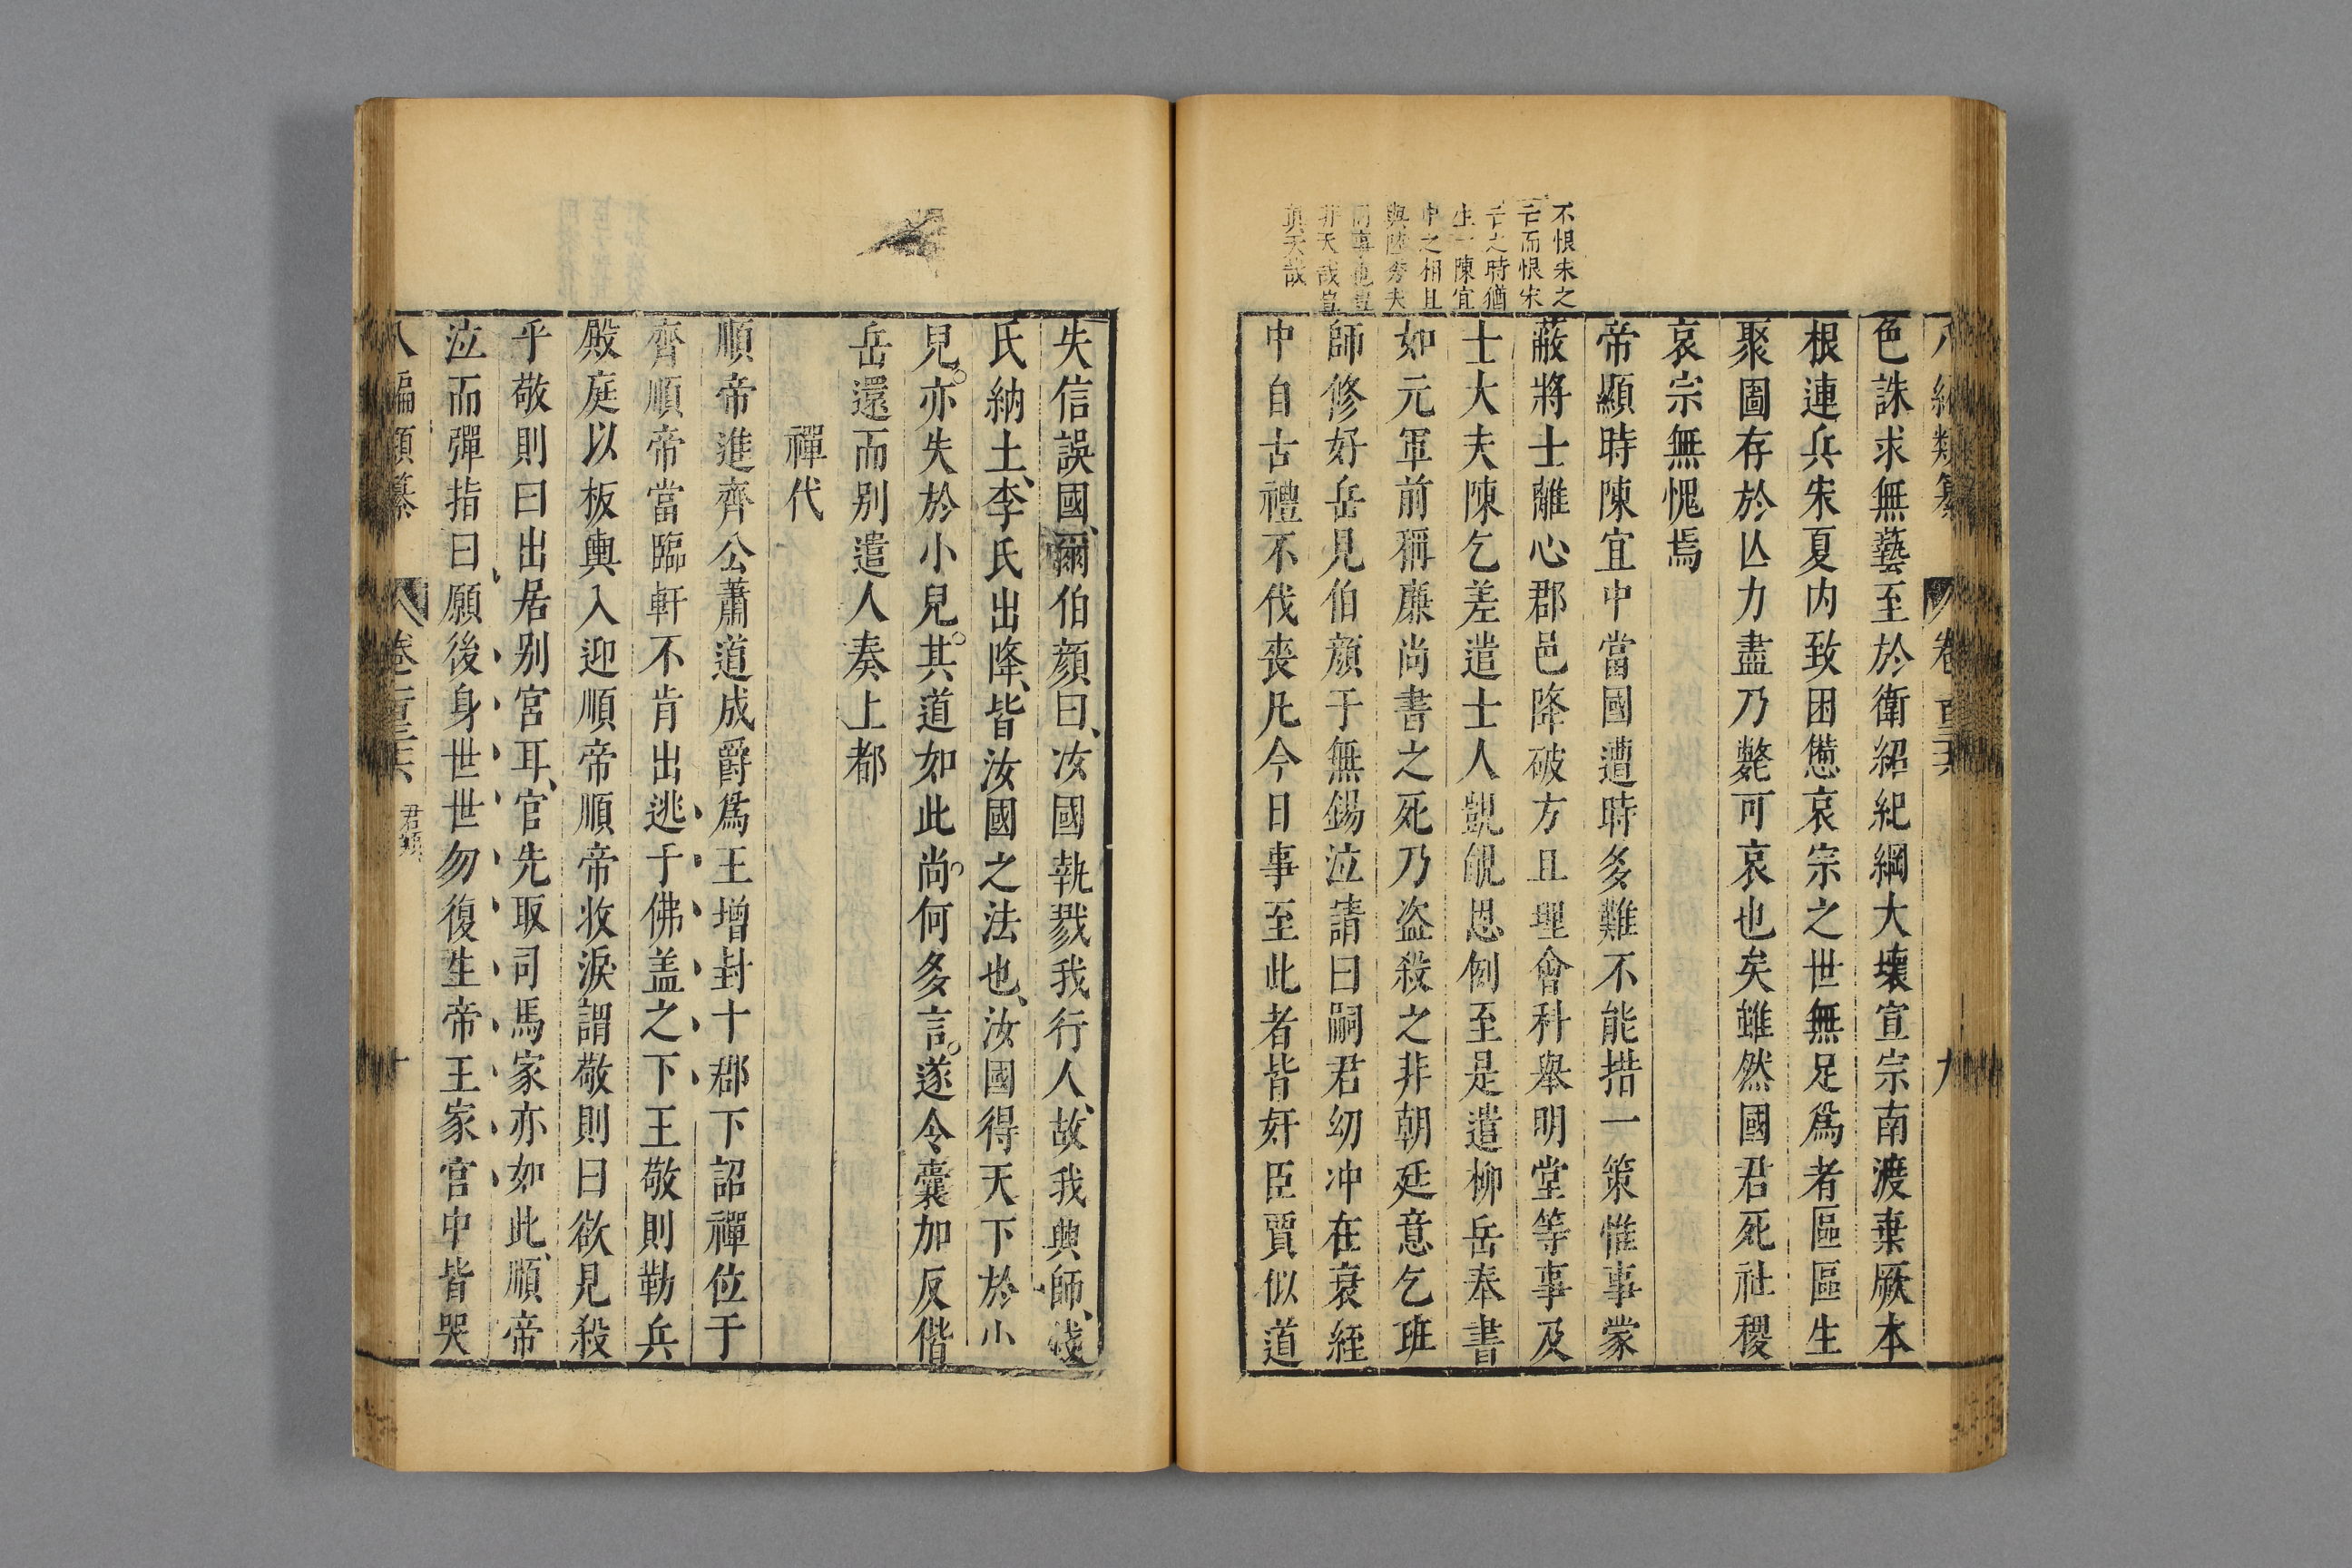 八編類纂 卷 九
色誅求無藝至於衛紹紀綱大壞宣宗南渡棄厥本
根連兵宋夏内致困憊哀宗之世無足爲者區區生
聚圖存於亾力盡乃斃可哀也矣雖然國君死社稷
哀宗無愧焉
帝㬎時陳宜中當國遭時多難不能措一策惟事蒙
蔽將士離心郡邑降破方且理會科舉明堂等事及
士大夫陳乞差遣士人覬覦恩例至是遣柳岳奉書
如元軍前稱廉尚書之死乃盗殺之非朝廷意乞班
師修好岳見伯顏于無錫泣請曰嗣君幼冲在衰絰
中自古禮不伐喪凡今日事至此者皆奸臣賈似道
不恨宋之
亡而恨宋
亡之時猶
生一陳宜
中之相且
與陸秀夫
同事也豈
非天哉豈
真天哉
失信誤國爾伯顏曰汝國執戮我行人故我興師錢
氏納土李氏出降皆汝國之法也汝國得天下於小
兒亦失於小兒其道如此尚何多言遂令囊加反偕
岳還而别遣人奏上都
禪代
順帝進齊公蕭道成爵爲王增封十郡下詔禪位于
齊順帝當臨軒不肯出逃于佛盖之下王敬則勒兵
殿庭以板輿入迎順帝順帝收淚謂敬則曰欲見殺
乎敬則曰出居别宮耳官先取司馬家亦如此順帝
泣而彈指曰願後身世世勿復生帝王家宮中皆哭
八編類纂 卷 君類 十